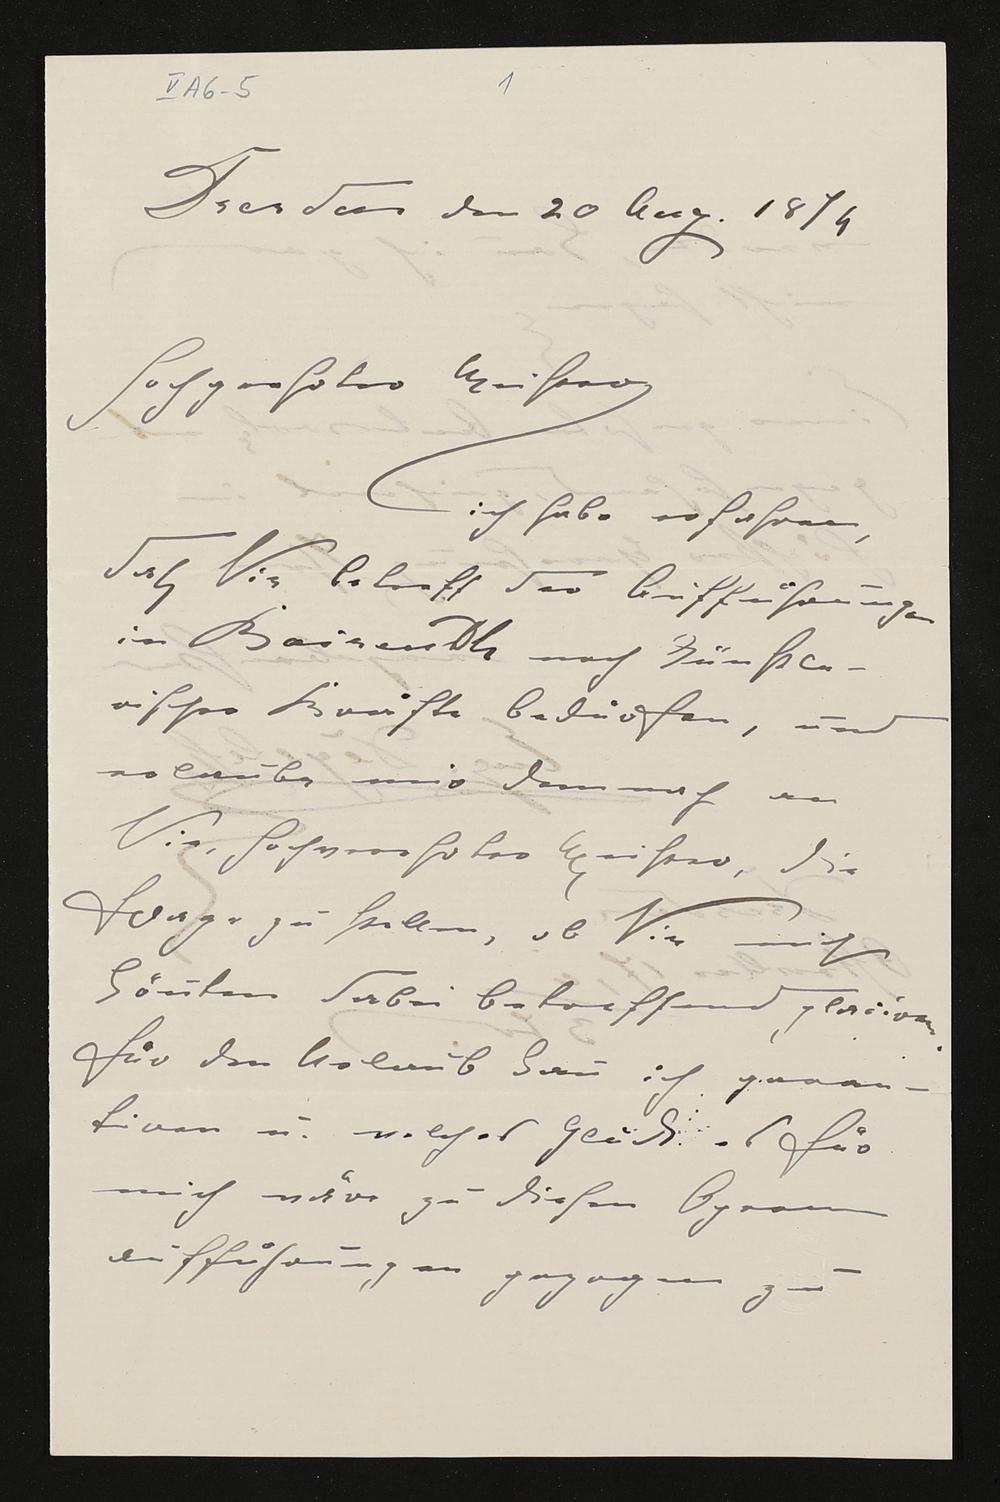 VA6-5 1
Dresden den 20 Aug. 1874
Hochverehrter Meister
ich habe erfahren,
daß Sie betreff der Aufführungen
in Baireuth noch Künstle-
rischer Kräfte bedürfen, und
erlaube mir demnach an
Sie, hochverehrter Meister, die
Frage zu stellen, ob Sie mich
könten dabei betreffend placiren.
für den Urlaub kan ich garan-
tiren u. welches Glück es für
mich wäre zu diesen Opern
aufführungen gezogen zu